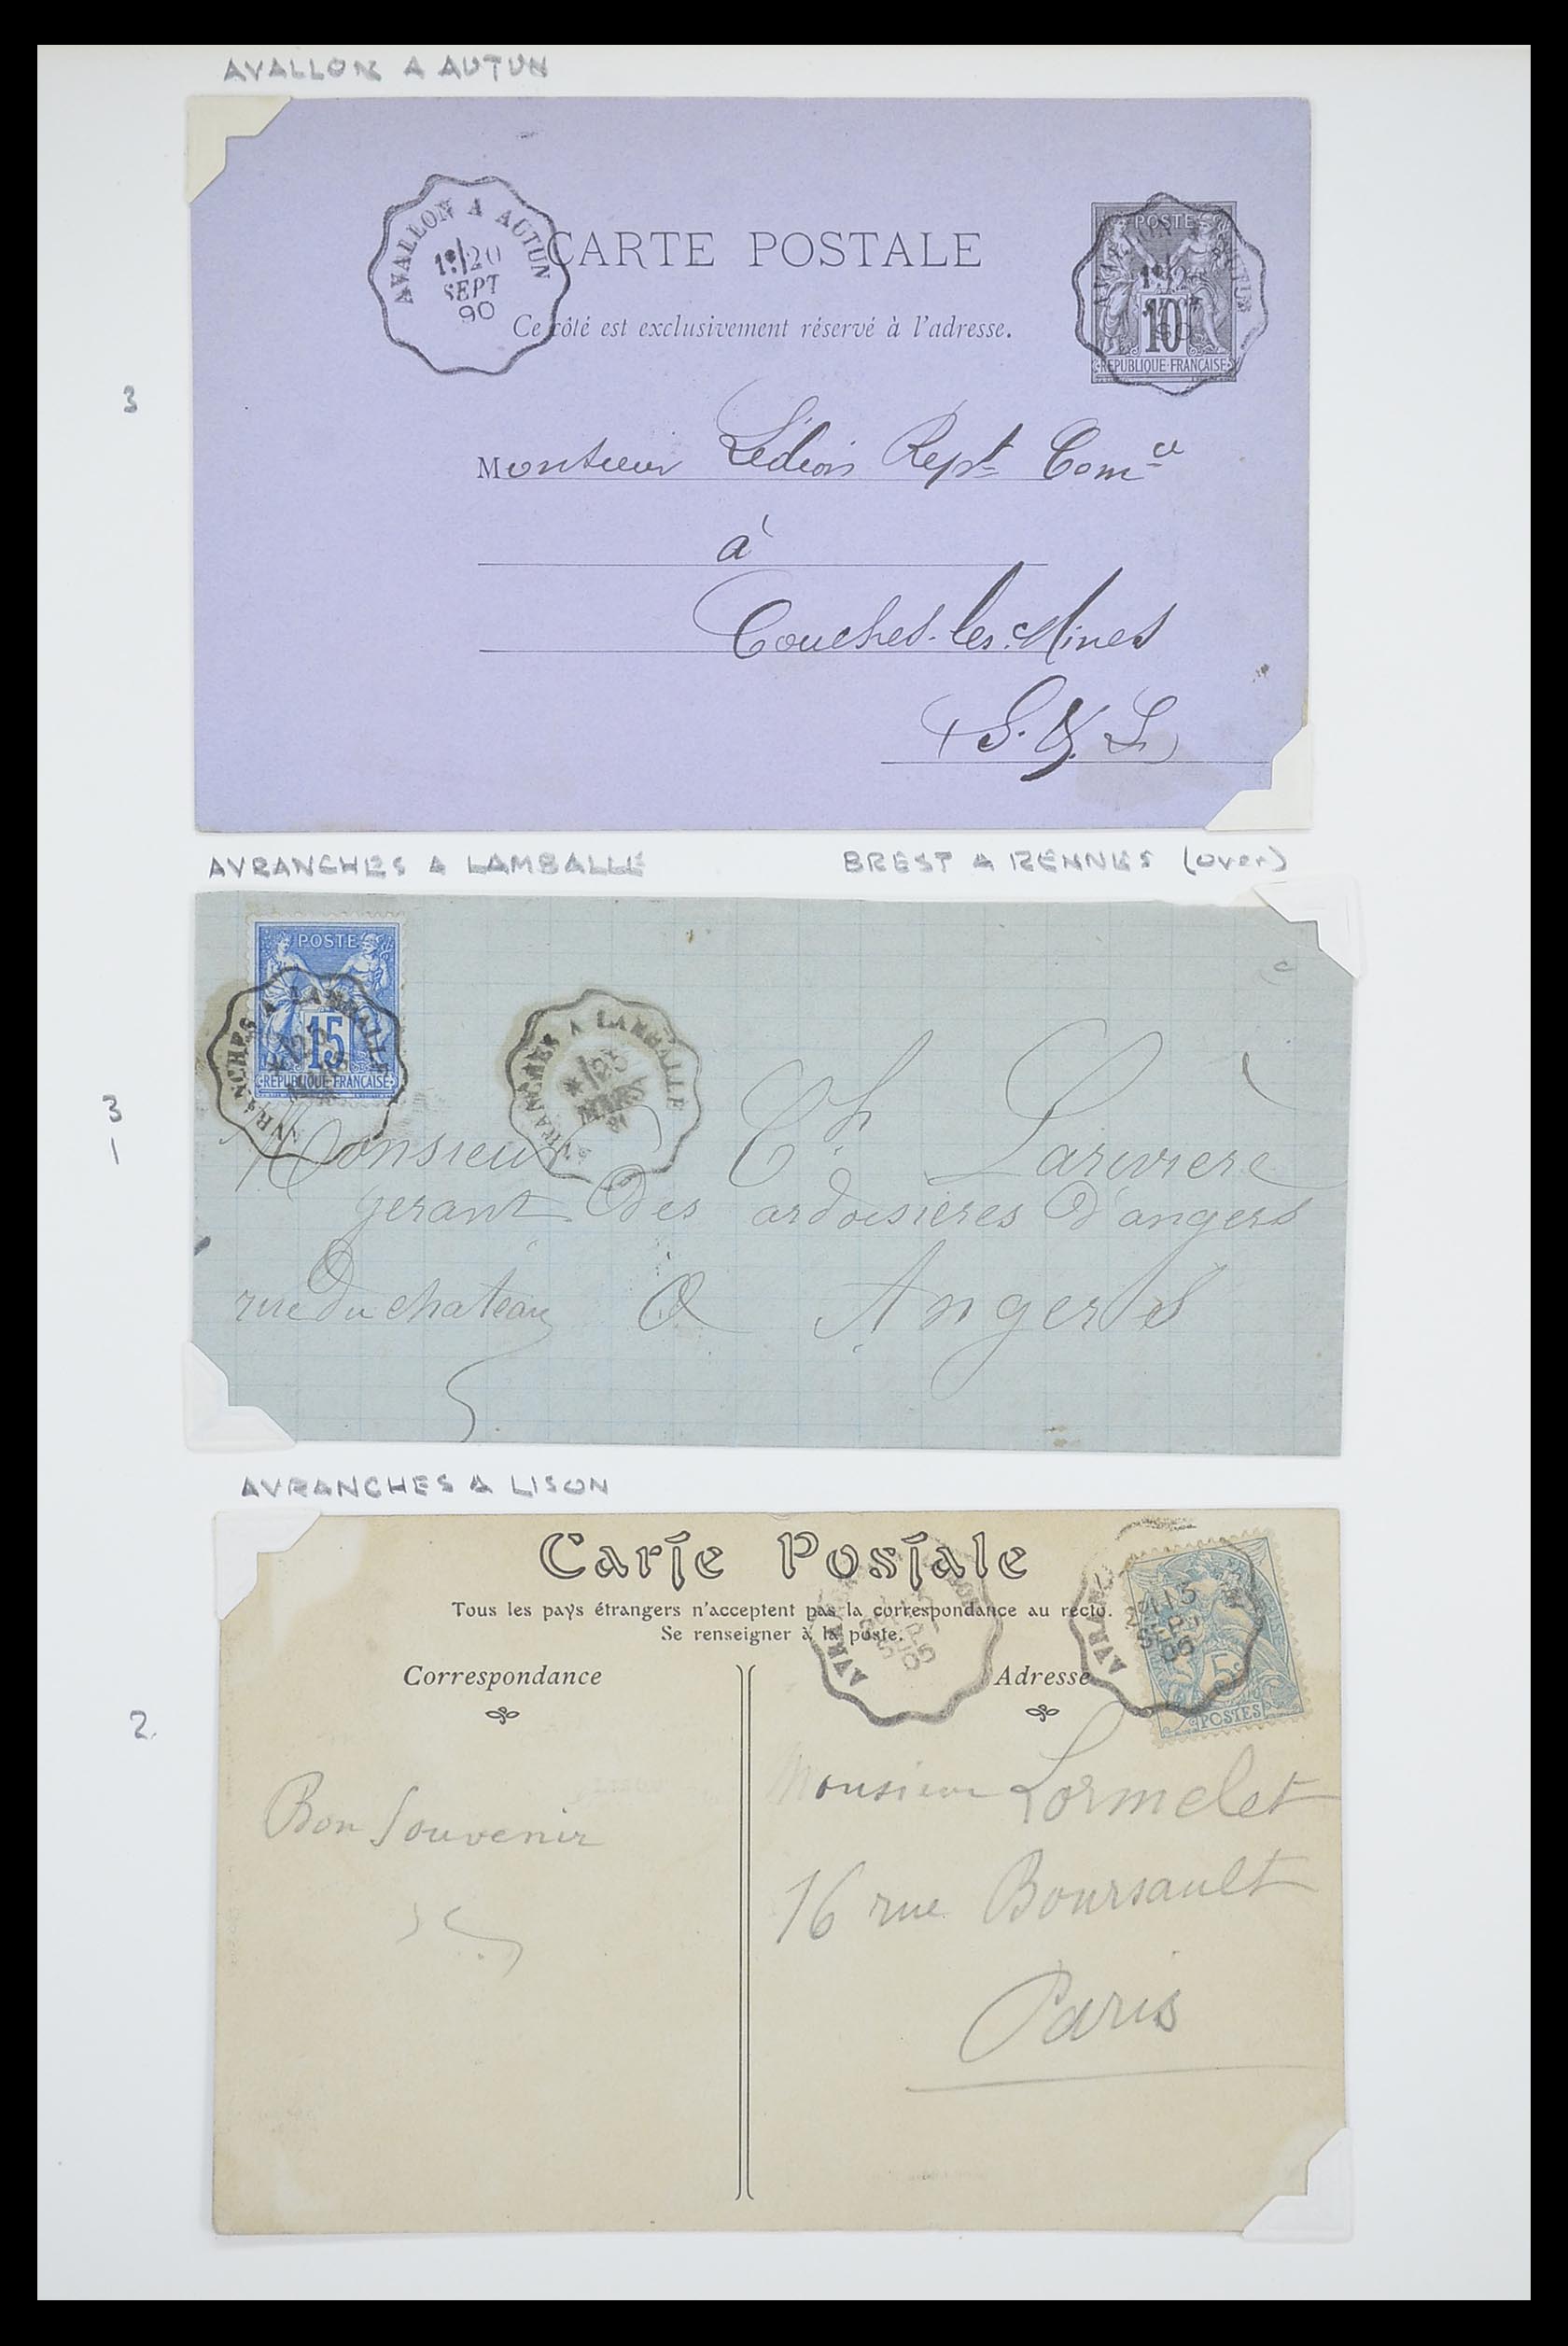 AVALLON A AUTUN
AVALLON A AUTUN
1e/20
SEPT
90
CARTE POSTALE
Ce côté est exclusivement réservé à l'adresse.
POSTE
10
REPUBLIQUE FRANÇAISE
3
Monsieur Rept Comce
à
Couches-les-Mines
(S. & L)
AVRANCHES A LAMBALLE
BREST A RENNES (over)
POSTE
15
REPUBLIQUE FRANÇAISE
AVRANCHES A LAMBALLE
AVRANCHES A LAMBALLE
*/25
MARS
3
1
Monsieur Ch. Larivière
gerant des ardoisières d'angers
rue du chateau à Angers
AVRANCHES A LISON
Carte Postale
Tous les pays étrangers n'acceptent pas la correspondance au recto.
Se renseigner à la poste.
Correspondance
Adresse
AVRAN
2e/15
SEPT
06
5
POSTES
2
Bon Souvenir
Monsieur Lormelet
16 rue Boursault
Paris